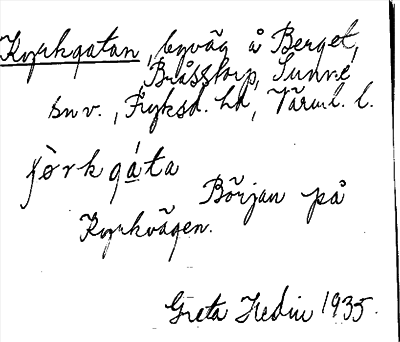 Kyrkgatan, byväg å Berget,
Bråsstorp, Sunne
snv., Fryksd. hd, Värml. l.
ʃòrkgáta
Början på
Kyrkvägen.
Greta Hedin 1935.